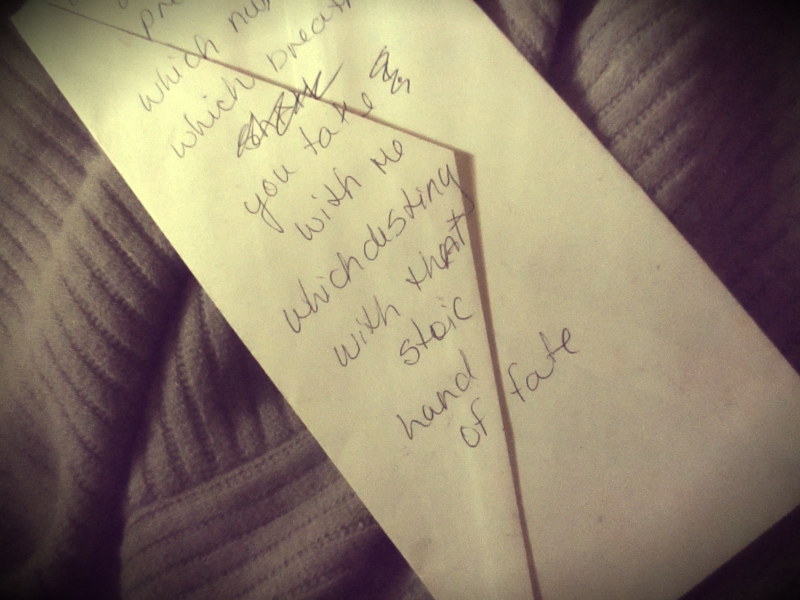 which
which breath
you take &
with me
which destiny
with that
stoic
hand
of fate